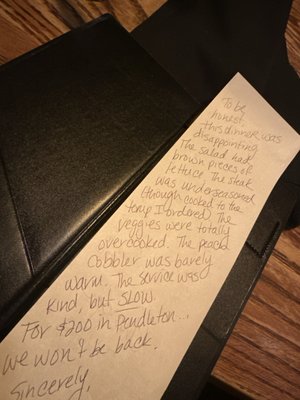 To be
honest,
this dinner was
disappointing.
The salad had
brown pieces of
lettuce. The steak
was underseasoned
(though cooked to the
temp I ordered). The
veggies were totally
overcooked. The peach
Cobbler was barely
warm. The service was
kind, but SLOW.
For $200 in Pendleton...
we won't be back.
Sincerely,